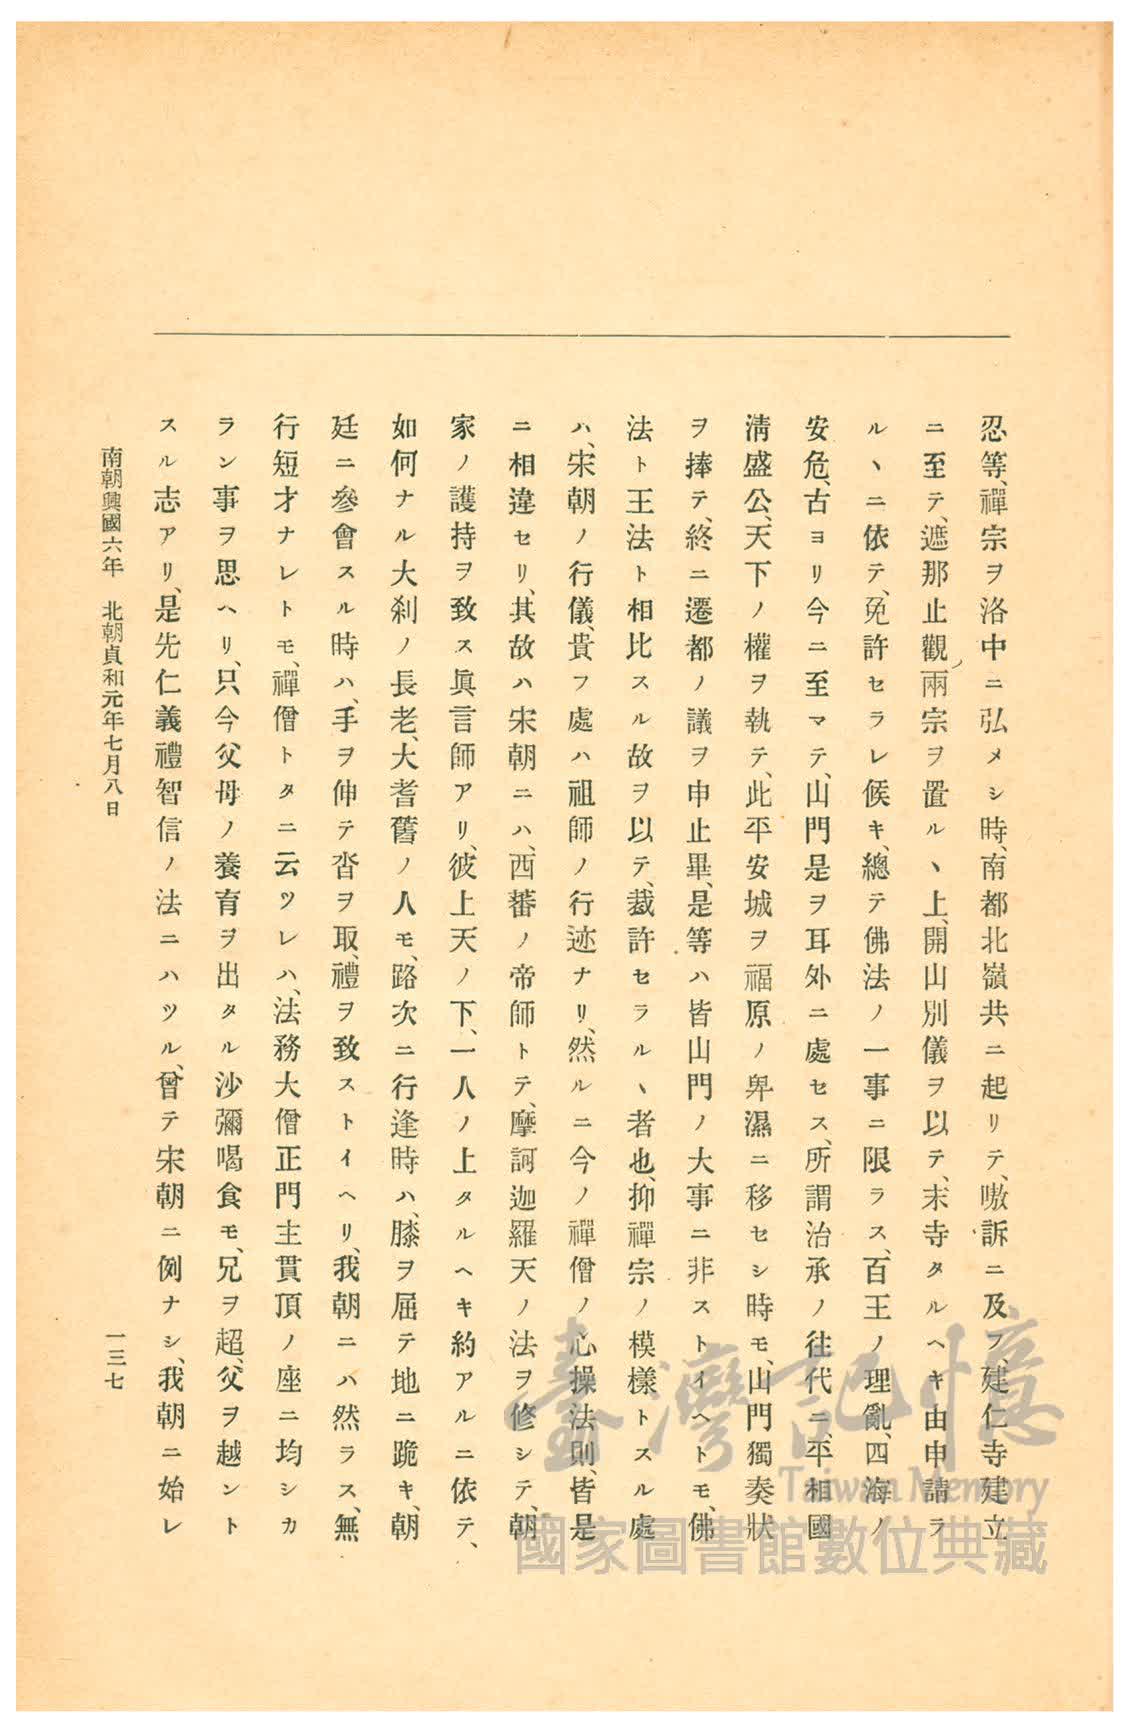 忍等、禪宗ヲ洛中ニ弘メシ時、南都北嶺共ニ起リテ、嗷訴ニ及フ、建仁寺建立
ニ至テ、遮那止觀ノ兩宗ヲ置ルヽ上、開山別儀ヲ以テ、末寺タルヘキ由申請ラ
ルヽニ依テ、免許セラレ候キ、總テ佛法ノ一事ニ限ラス、百王ノ理亂、四海ノ
安危、古ヨリ今ニ至マテ、山門是ヲ耳外ニ處セス、所謂治承ノ往代ニ、平相國
淸盛公、天下ノ權ヲ執テ、此平安城ヲ福原ノ卑濕ニ移セシ時モ、山門獨奏狀
ヲ捧テ、終ニ遷都ノ議ヲ申止畢、是等ハ皆山門ノ大事ニ非ストイヘトモ、佛
法ト王法ト相比スル故ヲ以テ、裁許セラルヽ者也、抑禪宗ノ模樣トスル處
ハ、宋朝ノ行儀、貴フ處ハ祖師ノ行迹ナリ、然ルニ今ノ禪僧ノ心操法則、皆是
ニ相違セリ、其故ハ宋朝ニハ、西蕃ノ帝師トテ、摩訶迦羅天ノ法ヲ修シテ、朝
家ノ護持ヲ致ス眞言師アリ、彼上天ノ下、一人ノ上タルヘキ約アルニ依テ、
如何ナル大刹ノ長老、大耆舊ノ人モ、路次ニ行逢時ハ、膝ヲ屈テ地ニ跪キ、朝
廷ニ參會スル時ハ、手ヲ伸テ沓ヲ取、禮ヲ致ストイヘリ、我朝ニハ然ラス、無
行短才ナレトモ、禪僧トタニ云ツレハ、法務大僧正門主貫頂ノ座ニ均シカ
ラン事ヲ思ヘリ、只今父母ノ養育ヲ出タル沙彌喝食モ、兄ヲ超、父ヲ越ント
スル志アリ、是先仁義禮智信ノ法ニハツル、曾テ宋朝ニ例ナシ、我朝ニ始レ
南朝興國六年　北朝貞和元年七月八日
一三七
臺灣記憶
Taiwan Memory
國家圖書館數位典藏